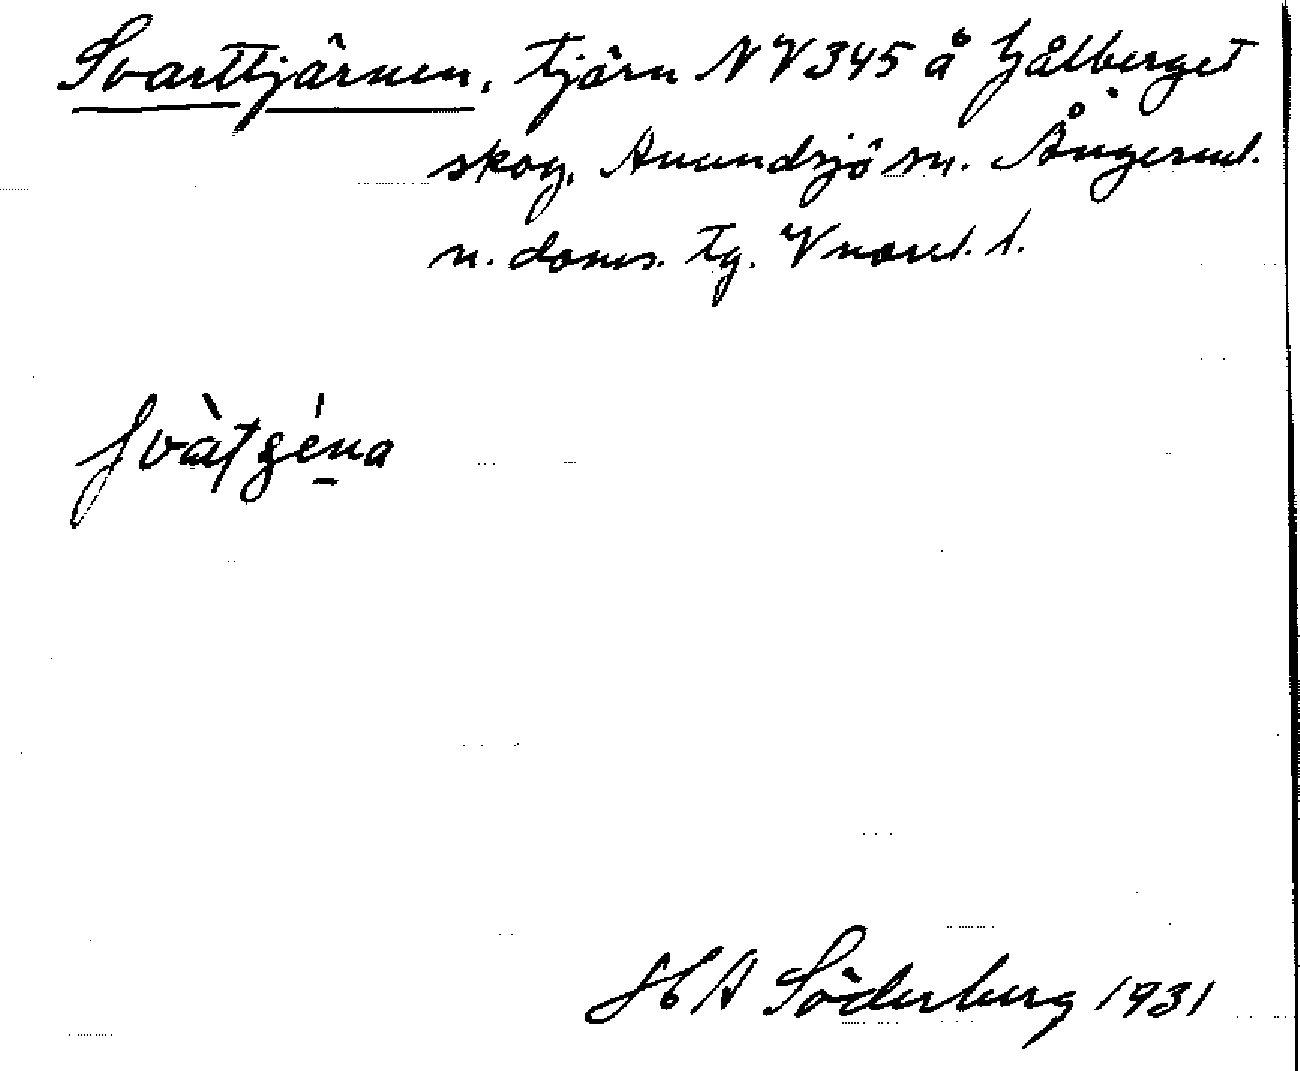 Svarttjärnen, tjärn NV345 å Gålberget
skog, Anundsjö sn. Ångerml.
n. doms. tg. Vnorrl. l.
Svàtǥéna
H A Söderberg 1931